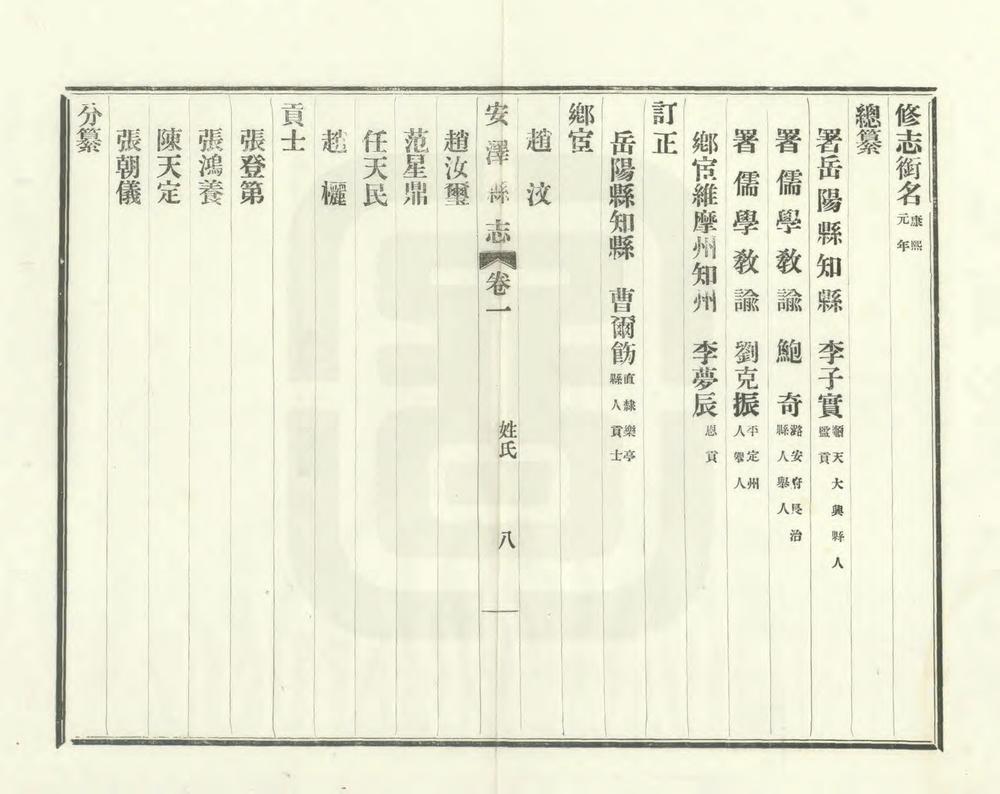 修志銜名康熙元年
總纂
署岳陽縣知縣 李子實順天大興縣人監貢
署儒學教諭 鮑奇潞安府長治縣人舉人
署儒學教諭 劉克振平定州人舉人
鄉宦維摩州知州 李夢辰恩貢
訂正
岳陽縣知縣 曹爾飭直隸樂亭縣人貢士
鄉宦
趙汶
安澤縣志 卷一 姓氏 八
趙汝璽
范星鼎
任天民
趙欐
貢士
張登第
張鴻養
陳天定
張朝儀
分纂